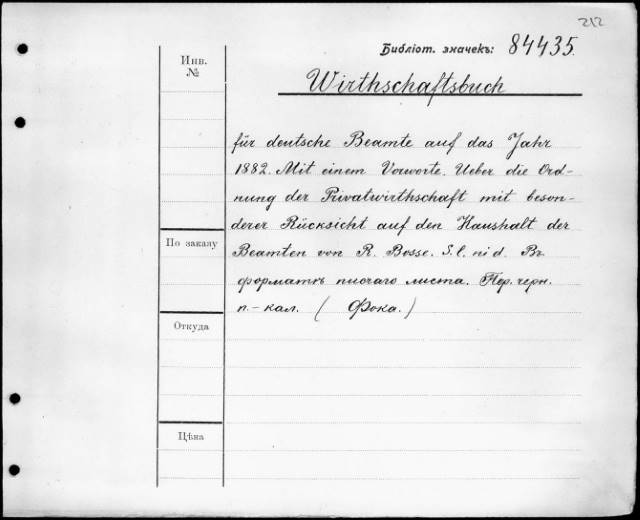 212
Библіот. значекъ: 84435.
Инв.
№
Wirthschaftsbuch
für deutsche Beamte auf das Jahr
1882. Mit einem Vorworte. Ueber die Ord-
nung der Privatwirthschaft mit beson-
derer Rücksicht auf den Haushalt der
По заказу
Beamten von R. Bosse. S. l. ni d. Въ
форматѣ писчаго листа. Пер. черн.
п.-кал. ( Фока. )
Откуда
Цѣна